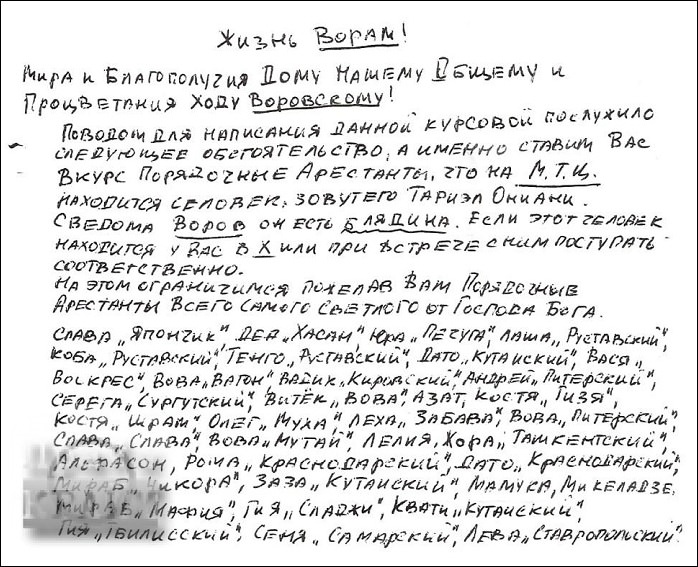 Жизнь Ворам!
Мира и Благополучия Дому Нашему Общему и
Процветания Ходу Воровскому!
Поводом для написания данной курсовой послужило
следующее обстоятельство, а именно ставим Вас
вкурс Порядочные Арестанты, что на М.Т.Ц.
находится селовек, зовутего Тариэл Ониани.
Сведома Воров он есть блядина. Если этот человек
находится у Вас в Х или при встрече сним поступать
соответственно.
На этом ограничимся пожелав Вам Порядочные
Арестанты Всего Самого Светлого от Господа Бога.
Слава „Япончик", Дед „Хасан", Юра „Пичуга", Лаша „Руставский",
Коба „Руставский", Тенго „Руставский", Дато „Кутаиский", Вася „
Воскрес", Вова „Вагон", Вадик „Кировский", Андрей „Питерский",
Серега „Сургутский", Витёк, „Вова", Азат, Костя „Гизя",
Костя „Шрам", Олег „Муха", Леха „Забава", Вова „Питерский",
Слава „Слава", Вова „Мутай", Лелия, Хора „Ташкентский",
Альфасон, Рома „Краснодарский", Дато „Краснодарский",
Мираб „Чикора", Заза „Кутаиский", Мамука, Микеладзе,
Мираб „Мафия", Гия „Сладжи", Квати „Кутаиский",
Гия „Тбилисский", Сеня „Самарский", Лева „Ставропольский".